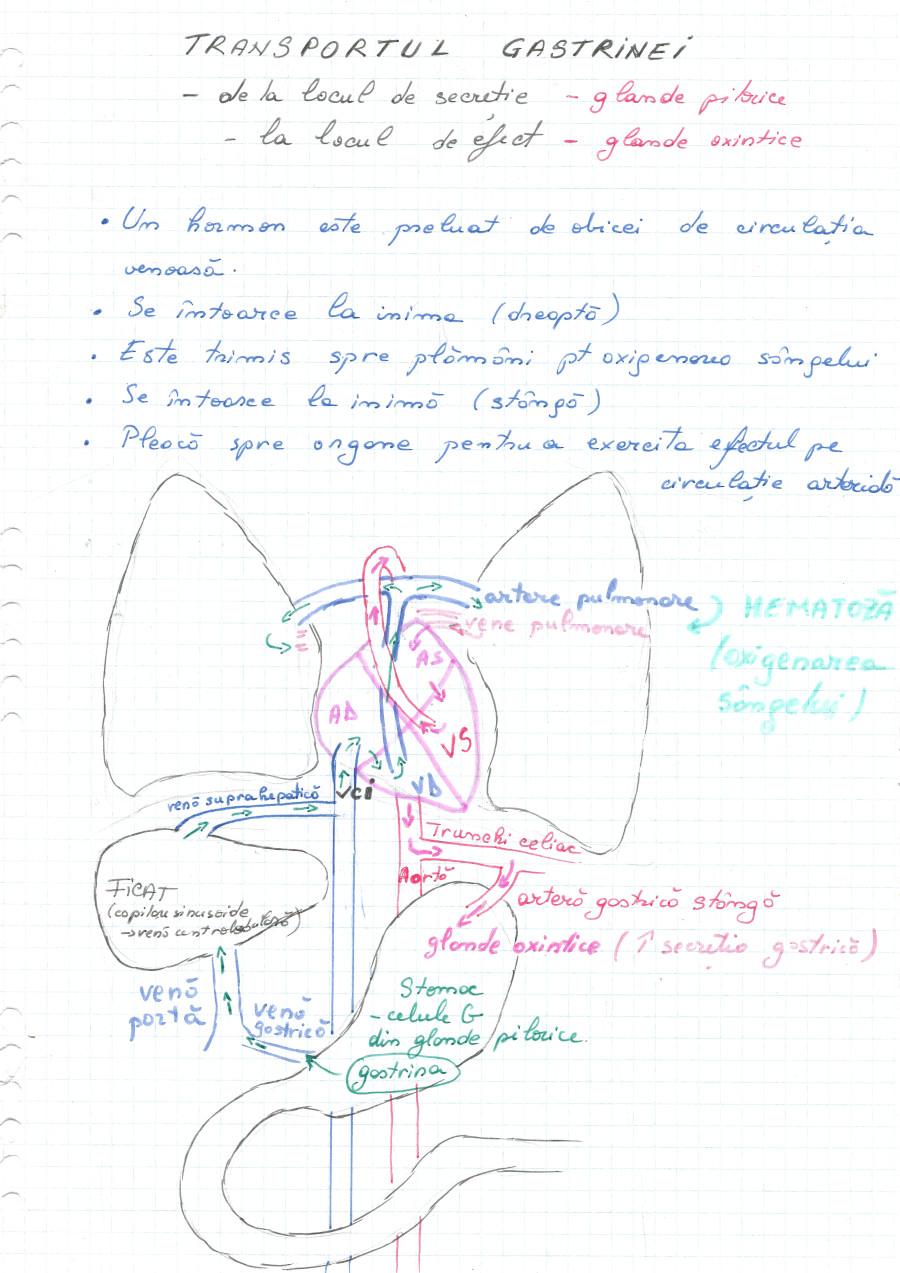 TRANSPORTUL GASTRINEI
- de la locul de secretie - glande pilorice
- la locul de efect - glande oxintice
• Un hormon este preluat de obicei de circulația
venoasă.
• Se întoarce la inima (dreaptă)
• Este trimis spre plămâni pt oxigenarea sângelui
• Se întoarce la inimă (stângă)
• Pleacă spre organe pentru a exercita efectul pe
circulație arterială
artere pulmonare
vene pulmonare
HEMATOZĂ
(oxigenarea
sângelui)
AS
AD
VS
VD
VCi
venă suprahepatică
Trunchi celiac
Aortă
arteră gastrică stângă
glande oxintice (↑ secreția gastrică)
FICAT
(capilare sinusoide
→ venă centrolobulară)
venă
portă
venă
gastrică
Stomac
- celule G
din glande pilorice.
gastrina